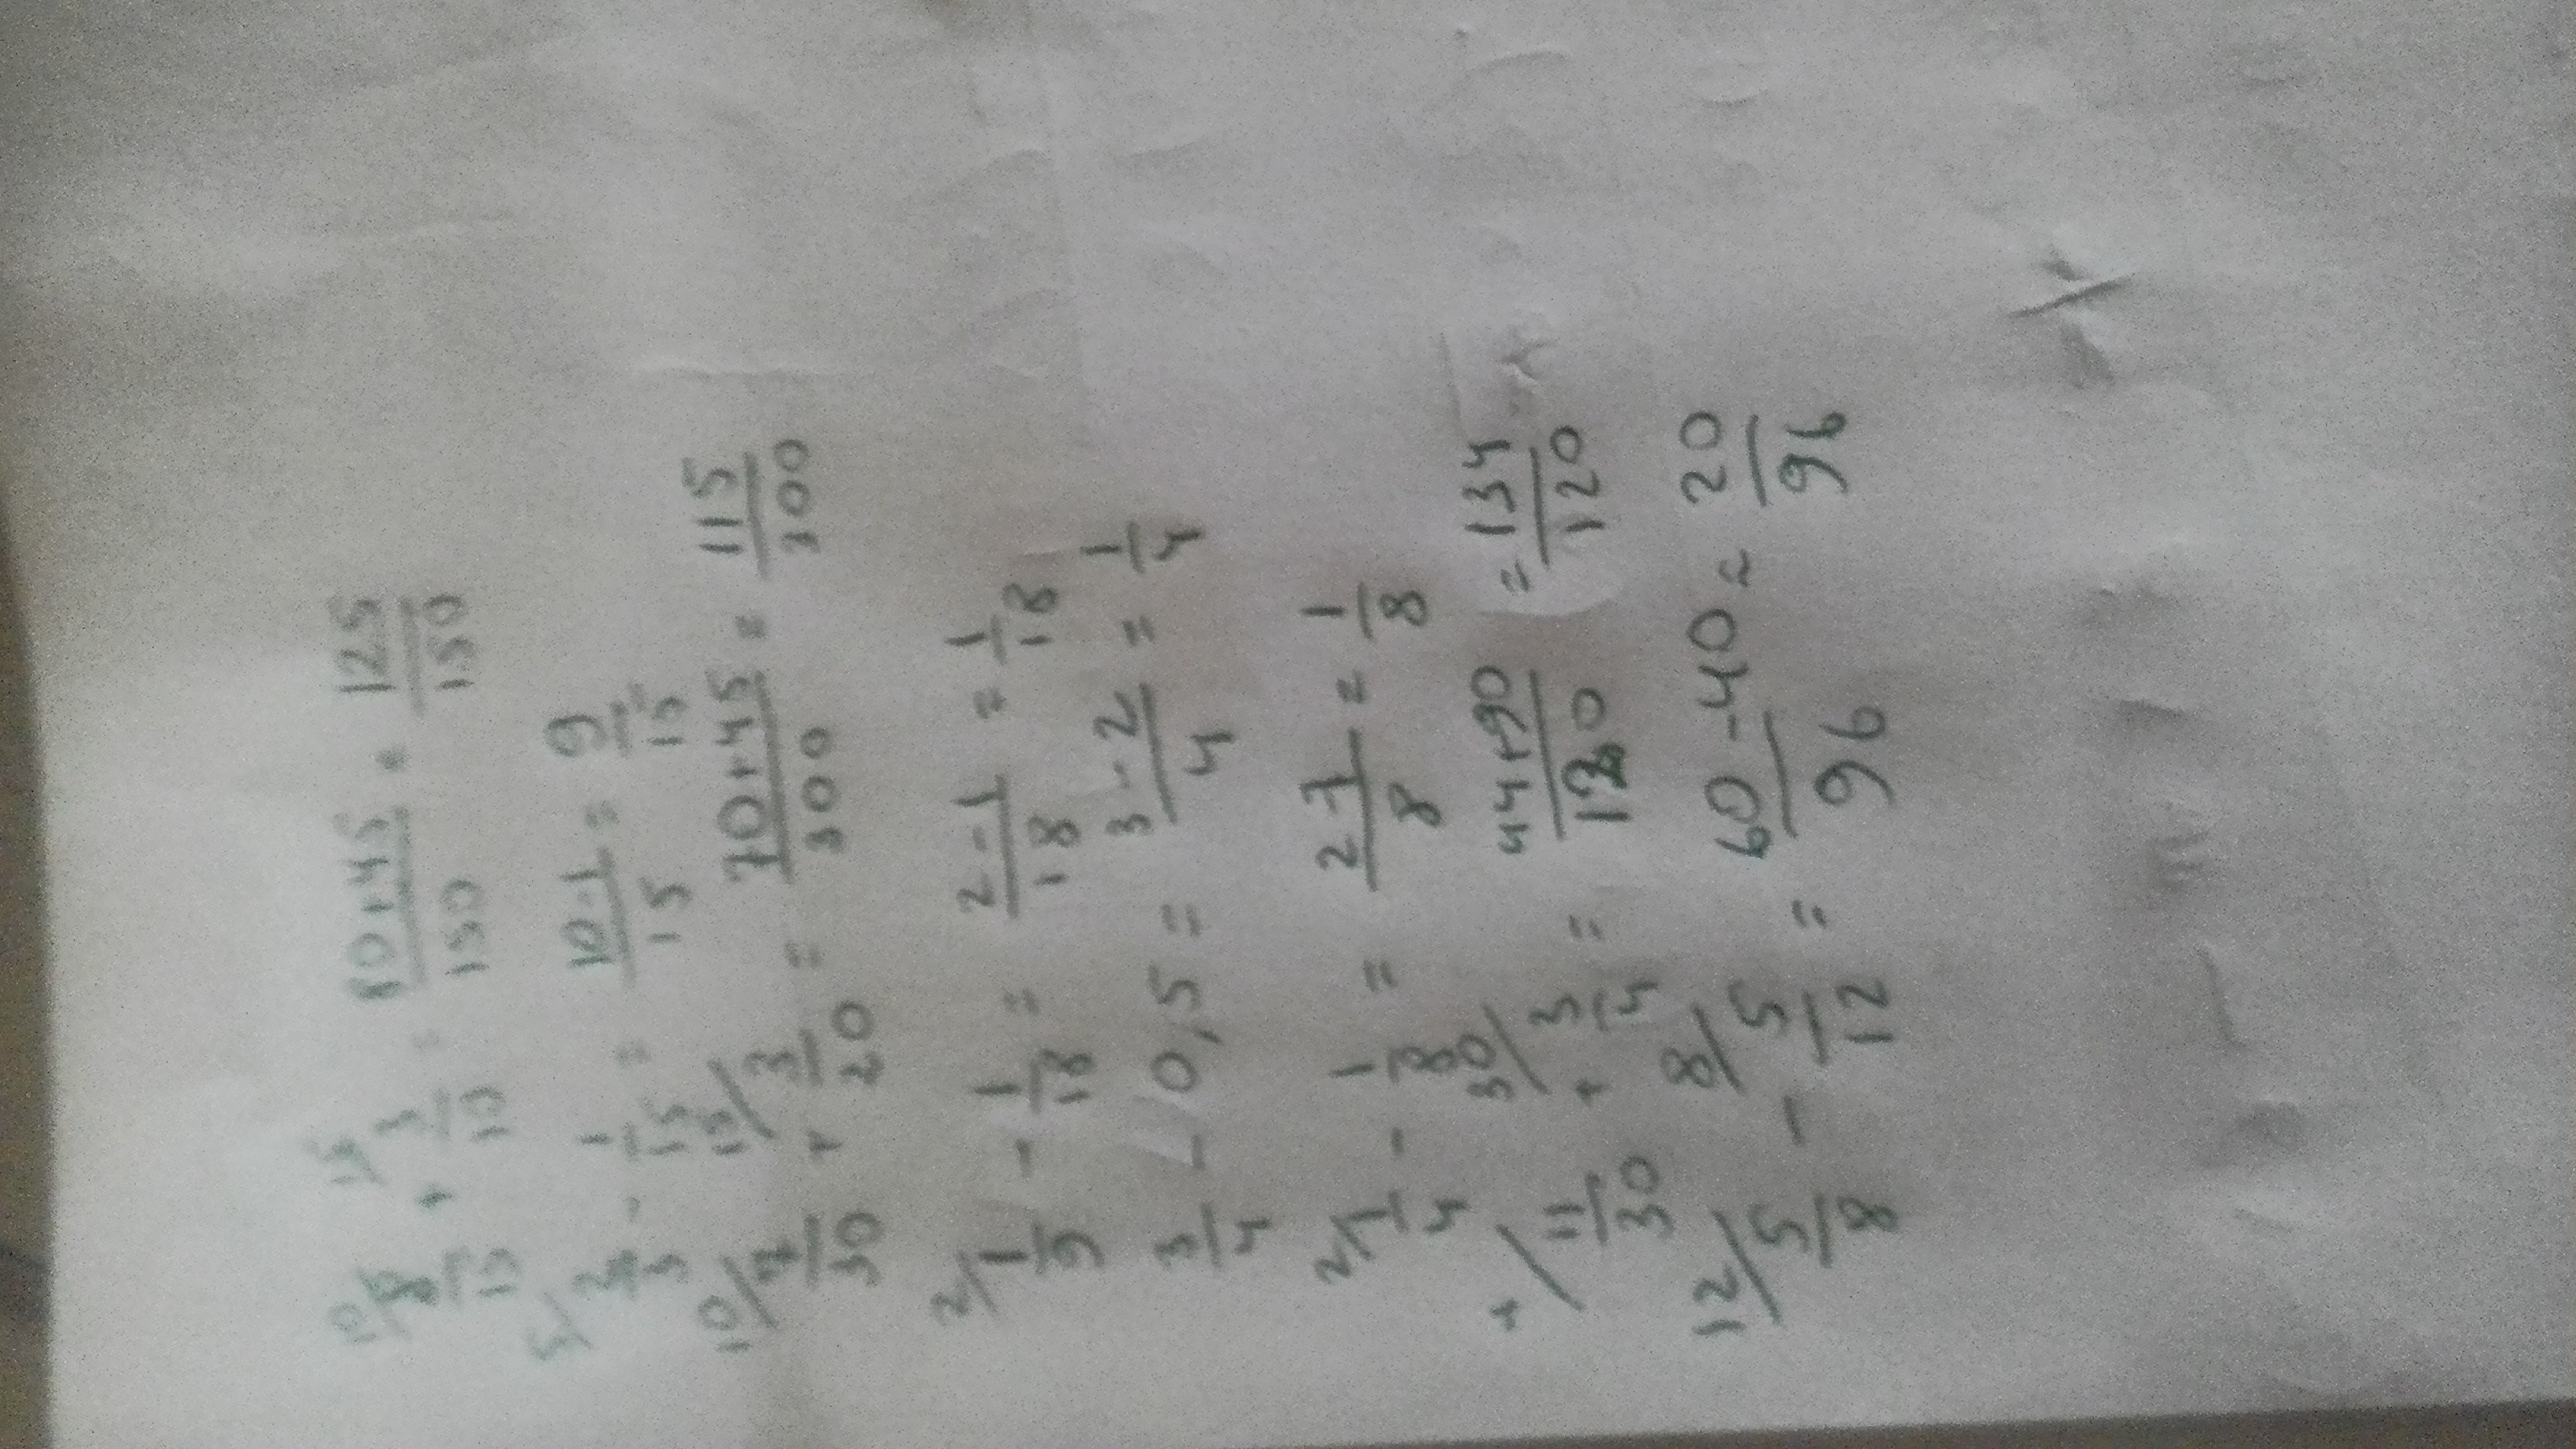 10/ 8/15 + 15/ 3/10 = 80+45/150 = 125/150
5/ 2/3 - 1/15 = 10-1/15 = 9/15
10/ 7/30 + 15/ 3/20 = 70+45/300 = 115/300
2/ 1/9 - 1/18 = 2-1/18 = 1/18
3/4 - 0,5 = 3-2/4 = 1/4
2/ 1/4 - 1/8 = 2-1/8 = 1/8
4/ 11/30 + 30/ 3/4 = 44+90/120 = 134/120
12/ 5/8 - 8/ 5/12 = 60-40/96 = 20/96